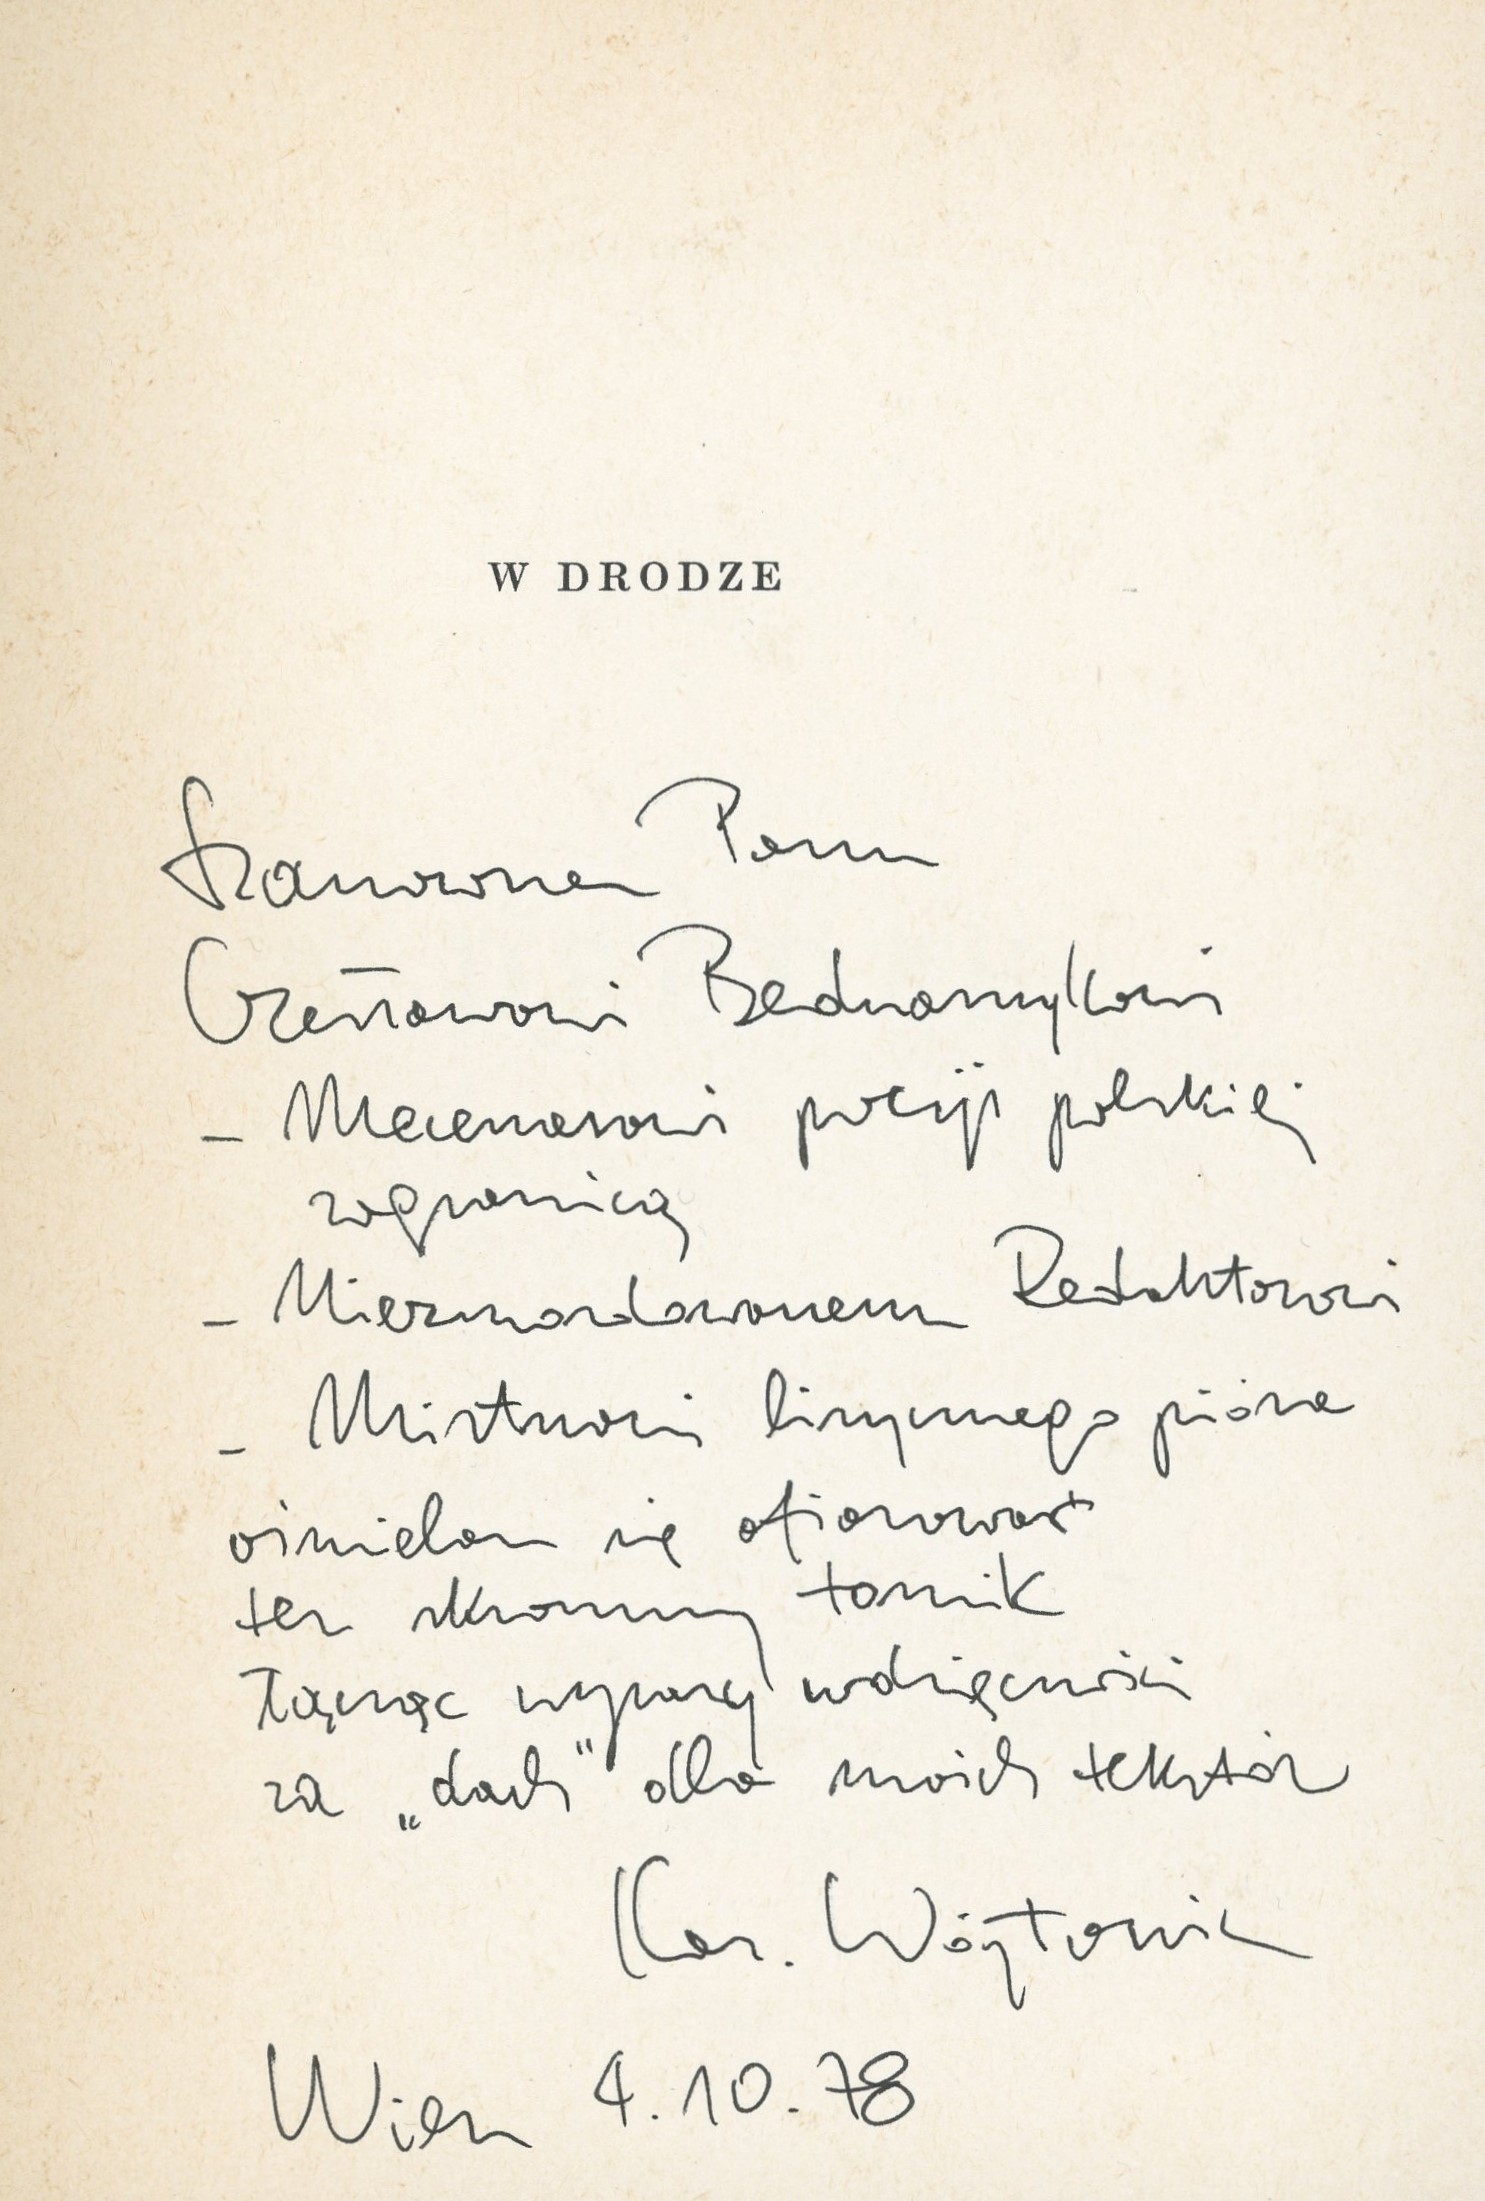 W DRODZE
Szanownemu Panu
Czesławowi Bednarczykowi
– Mecenasowi poezji polskiej
zagranicą
– Niezmordowanemu Redaktorowi
– Mistrzowi lirycznego pióra
ośmielam się ofiarować
ten skromny tomik
łącząc wyrazy wdzięczności
za „dach" dla moich tekstów
Kaz. Wójtowicz
Wien 4.10.78